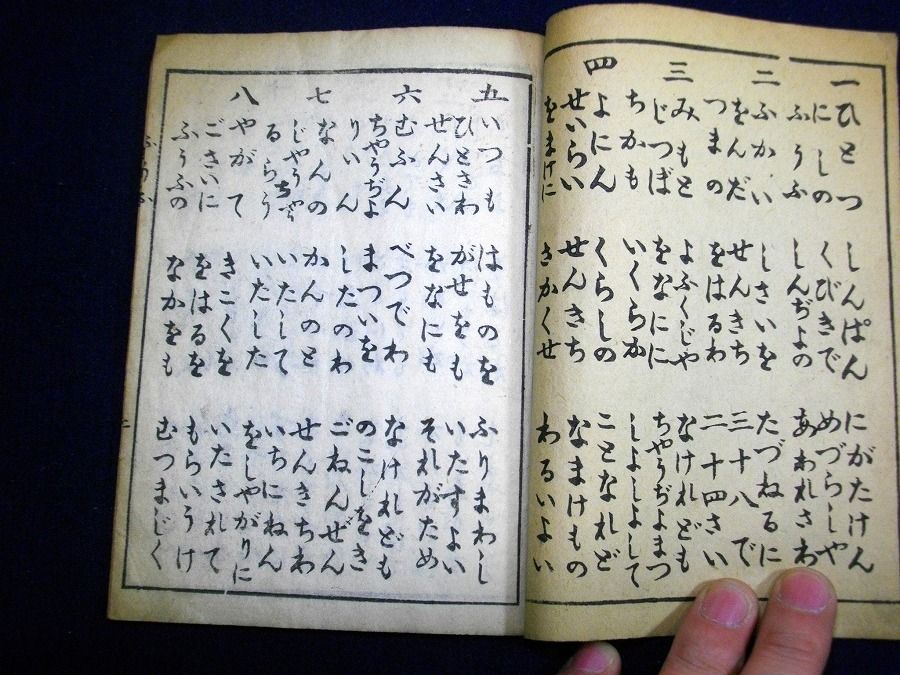 一 ひとつ しんぱん にがたけん
にしの くびきで めづらしや
ふうふ しんぢよの あわれさわ
二 ふかい じさいを たづねるに
をんだ せんきち 三十八で
つまの をはるわ 二十四さい
三 みもと よふくじや なけれども
じつぼ をなに ちやうぢよまつ
ちかも いくらか しよしよして
四 よにん くらしの ことなれど
せいらい せんきち なまけもの
をまけに きかくせ わるいよい
五 いつも はものを ふりまわし
ひときわ がせをも いたすよい
せんさい をなにも それがため
六 むふん べつでわ なけれども
ちやうぢよ まついを のこしをき
りいん したのわ ごねんぜん
七 なんの かんのと せんきちわ
じやう いたして いちにねん
るらう いたした をしやがりに
八 やがて きこくを いたされて
ごさいに をはるを もらいうけ
ふうふの なかをも むつまじく
ふうふ 二